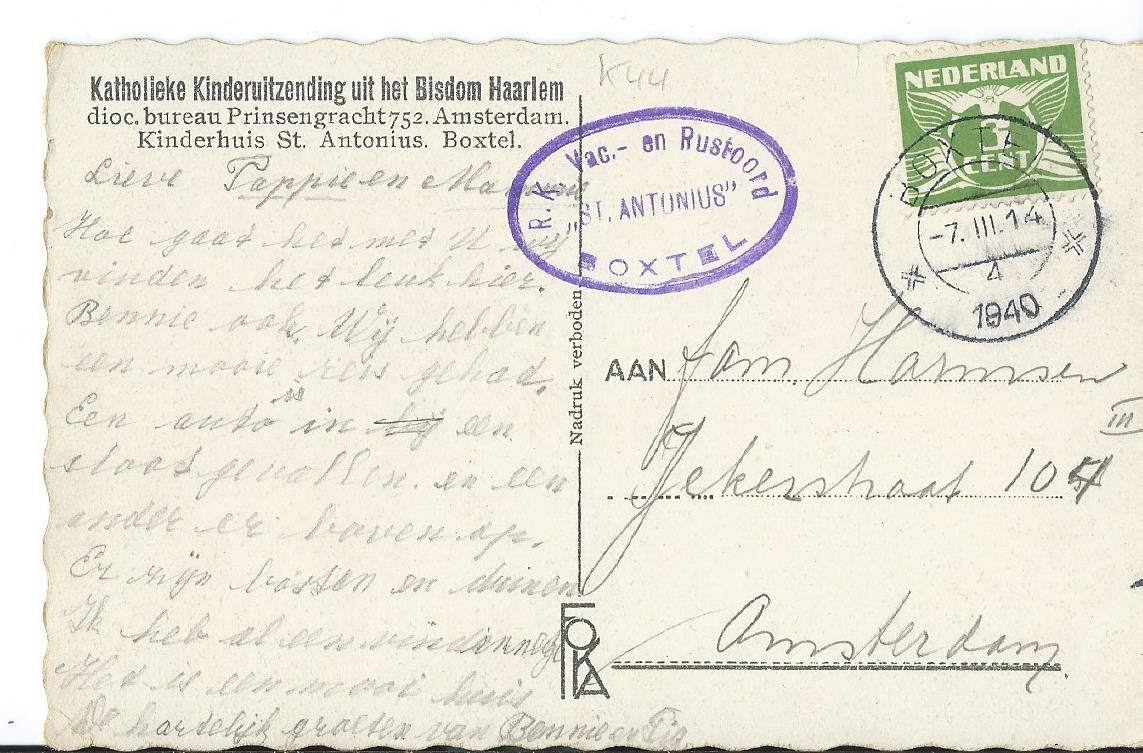 Katholieke Kinderuitzending uit het Bisdom Haarlem
dioc. bureau Prinsengracht 752. Amsterdam.
Kinderhuis St. Antonius. Boxtel.
Lieve Pappie en Mammie
Hoe gaat het met U wij
vinden het leuk hier.
Bennie ook. Wij hebben
een mooie reis gehad.
Een auto is in hij een
sloot gevallen. en een
ander er boven op.
Er zijn bossen en duinen
Ik heb al een vindinnetje
Het is een mooi huis
De hartelijk groeten van Bennie en
K44
R.K. Vac.- en Rustoord
„ST. ANTONIUS”
BOXTEL
NEDERLAND
CENT
BOXTEL
-7.III.14
4
1940
Nadruk verboden
AAN Fam. Harmsen
Jekerstraat 104 III
Amsterdam.
FOKA